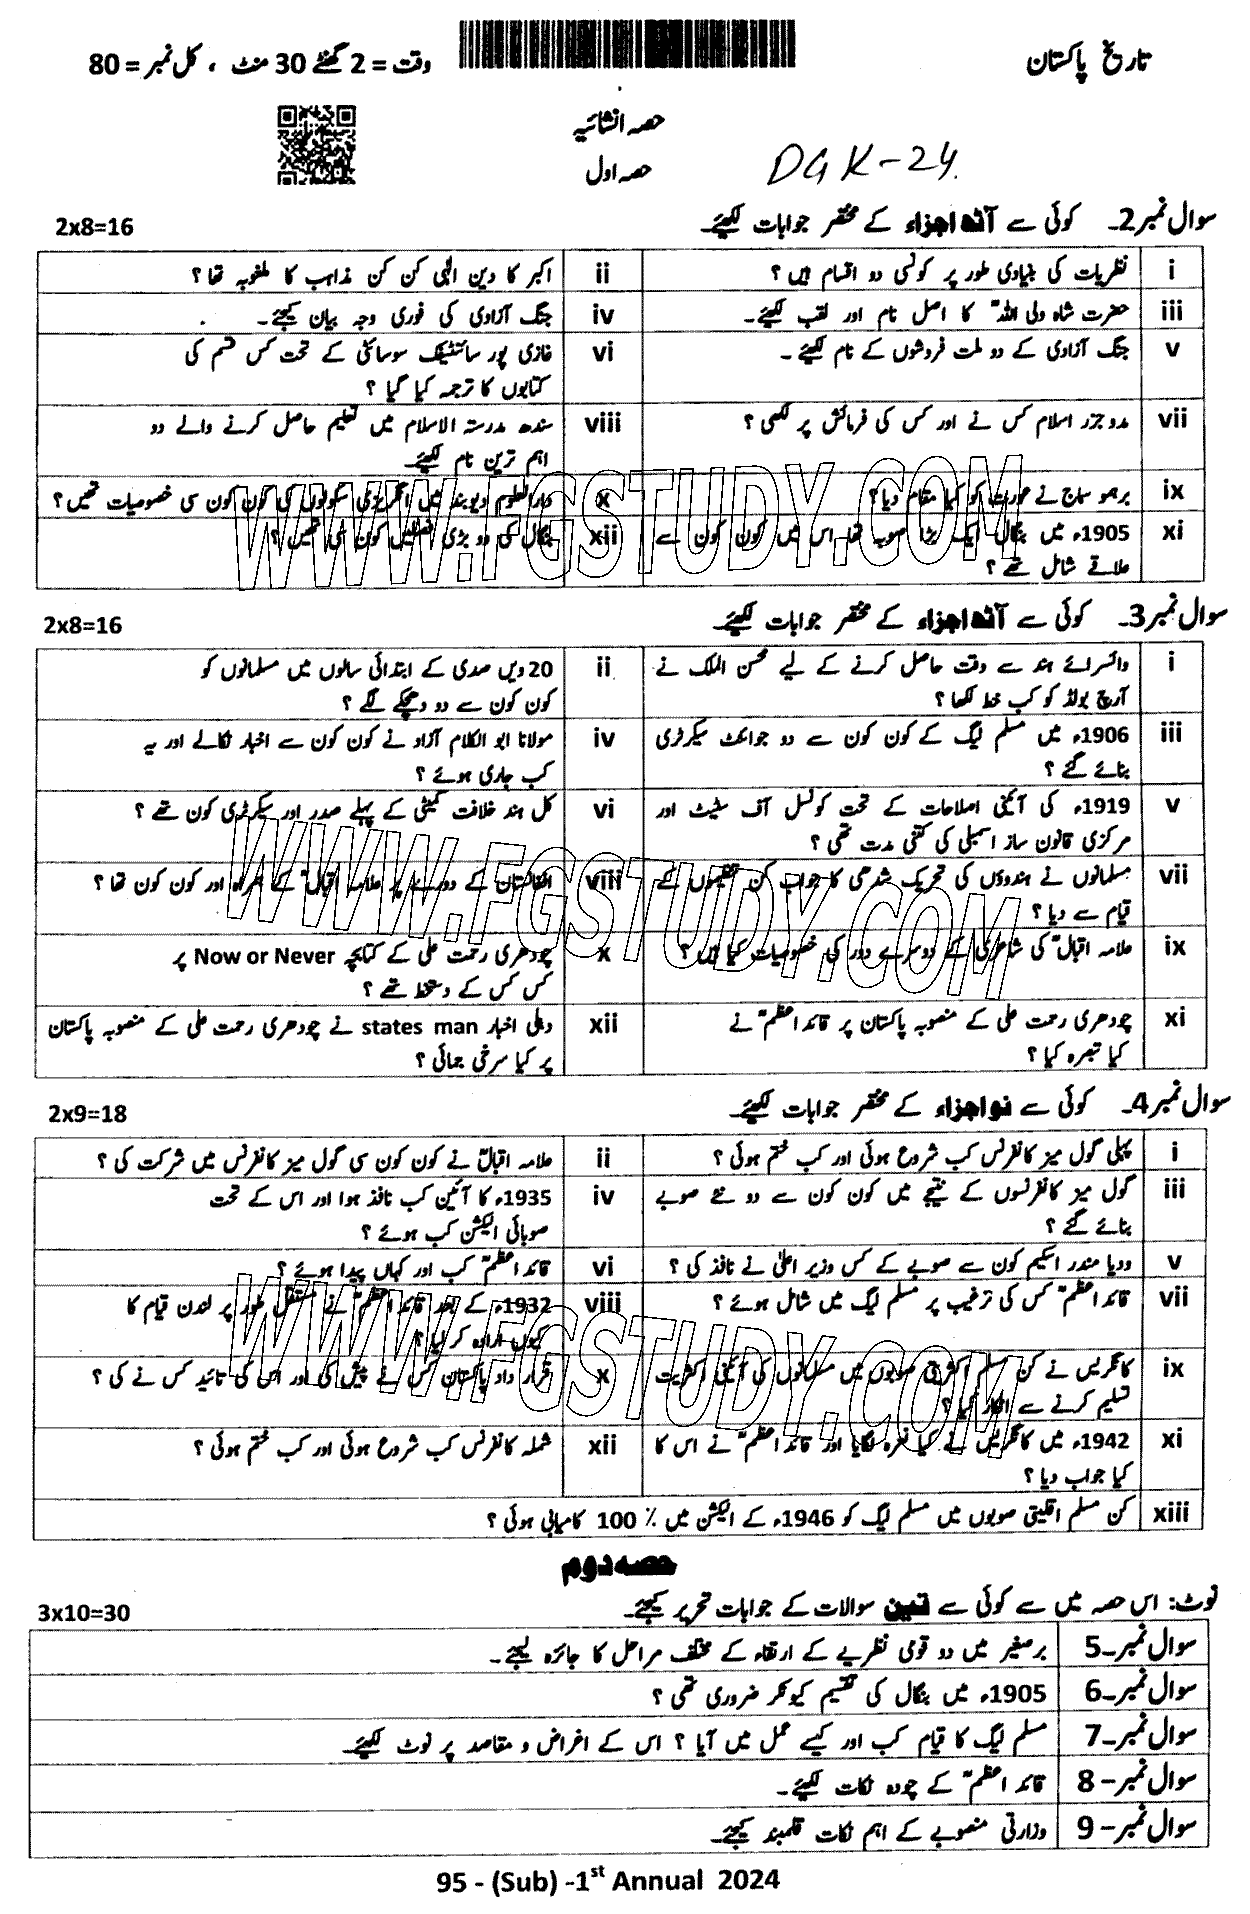 تاریخ پاکستان
وقت = 2 گھنٹے 30 منٹ ، کل نمبر = 80
حصہ انشائیہ
حصہ اول
DGK-24.
سوال نمبر2۔ کوئی سے آٹھ اجزاء کے مختصر جوابات لکھیئے۔ 2x8=16
i نظریات کی بنیادی طور پر کونسی دو اقسام ہیں؟
ii اکبر کا دین الٰہی کن کن مذاہب کا ملغوبہ تھا؟
iii حضرت شاہ ولی اللہؒ کا اصل نام اور لقب لکھیئے۔
iv جنگ آزادی کی فوری وجہ بیان کیجئے۔
v جنگ آزادی کے دو ملت فروشوں کے نام لکھیئے۔
vi غازی پور سائنٹیفک سوسائٹی کے تحت کس قسم کی
کتابوں کا ترجمہ کیا گیا؟
vii مدوجزر اسلام کس نے اور کس کی فرمائش پر لکھی؟
viii سندھ مدرستہ الاسلام میں تعلیم حاصل کرنے والے دو
اہم ترین نام لکھیئے۔
ix برہمو سماج نے عورت کو کیا مقام دیا؟
x دارالعلوم دیوبند میں انگریزی سکولوں کی کون کون سی خصوصیات تھیں؟
xi 1905ء میں بنگال ایک بڑا صوبہ تھا اس میں کون کون سے
علاقے شامل تھے؟
xii بنگال کی دو بڑی فصلیں کون سی تھیں؟
سوال نمبر3۔ کوئی سے آٹھ اجزاء کے مختصر جوابات لکھیئے۔ 2x8=16
i وائسرائے ہند سے وقت حاصل کرنے کے لیے محسن الملک نے
آرچ بولڈ کو کب خط لکھا؟
ii 20ویں صدی کے ابتدائی سالوں میں مسلمانوں کو
کون کون سے دو دھچکے لگے؟
iii 1906ء میں مسلم لیگ کے کون کون سے دو جوائنٹ سیکرٹری
بنائے گئے؟
iv مولانا ابو الکلام آزاد نے کون کون سے اخبار نکالے اور یہ
کب جاری ہوئے؟
v 1919ء کی آئینی اصلاحات کے تحت کونسل آف سٹیٹ اور
مرکزی قانون ساز اسمبلی کی کتنی مدت تھی؟
vi کل ہند خلافت کمیٹی کے پہلے صدر اور سیکرٹری کون تھے؟
vii مسلمانوں نے ہندوؤں کی تحریک شدھی کا جواب کن تنظیموں کے
قیام سے دیا؟
viii افغانستان کے دورے پر علامہ اقبالؒ کے ہمراہ اور کون کون تھا؟
ix علامہ اقبالؒ کی شاعری کے دوسرے دور کی خصوصیات کیا ہیں؟
x چودھری رحمت علی کے کتابچہ Now or Never پر
کس کس کے دستخط تھے؟
xi چودھری رحمت علی کے منصوبہ پاکستان پر قائداعظمؒ نے
کیا تبصرہ کیا؟
xii دہلی اخبار states man نے چودھری رحمت علی کے منصوبہ پاکستان
پر کیا سرخی جمائی؟
سوال نمبر4۔ کوئی سے نو اجزاء کے مختصر جوابات لکھیئے۔ 2x9=18
i پہلی گول میز کانفرنس کب شروع ہوئی اور کب ختم ہوئی؟
ii علامہ اقبالؒ نے کون کون سی گول میز کانفرنس میں شرکت کی؟
iii گول میز کانفرنسوں کے نتیجے میں کون کون سے دو نئے صوبے
بنائے گئے؟
iv 1935ء کا آئین کب نافذ ہوا اور اس کے تحت
صوبائی الیکشن کب ہوئے؟
v ودیا مندر اسکیم کون سے صوبے کے کس وزیر اعلیٰ نے نافذ کی؟
vi قائداعظمؒ کب اور کہاں پیدا ہوئے؟
vii قائداعظمؒ کس کی ترغیب پر مسلم لیگ میں شامل ہوئے؟
viii 1932ء کے بعد قائداعظمؒ نے مستقل طور پر لندن قیام کا
کیوں ارادہ کر لیا؟
ix کانگریس نے کن مسلم اکثریتی صوبوں میں مسلمانوں کی آئینی اکثریت
تسلیم کرنے سے انکار کیا؟
x قرار داد پاکستان کس نے پیش کی اور اس کی تائید کس نے کی؟
xi 1942ء میں کانگریس نے کیا نعرہ لگایا اور قائداعظمؒ نے اس کا
کیا جواب دیا؟
xii شملہ کانفرنس کب شروع ہوئی اور کب ختم ہوئی؟
xiii کن مسلم اقلیتی صوبوں میں مسلم لیگ کو 1946ء کے الیکشن میں 100 % کامیابی ہوئی؟
حصہ دوم
نوٹ: اس حصہ میں سے کوئی سے تین سوالات کے جوابات تحریر کیجئے۔ 3x10=30
سوال نمبر۔5 برصغیر میں دو قومی نظریے کے ارتقاء کے مختلف مراحل کا جائزہ لیجئے۔
سوال نمبر۔6 1905ء میں بنگال کی تقسیم کیونکر ضروری تھی؟
سوال نمبر۔7 مسلم لیگ کا قیام کب اور کیسے عمل میں آیا؟ اس کے اغراض و مقاصد پر نوٹ لکھیئے۔
سوال نمبر- 8 قائداعظمؒ کے چودہ نکات لکھیئے۔
سوال نمبر- 9 وزارتی منصوبے کے اہم نکات قلمبند کیجئے۔
95 - (Sub) -1st Annual 2024
WWW.FGSTUDY.COM
WWW.FGSTUDY.COM
WWW.FGSTUDY.COM